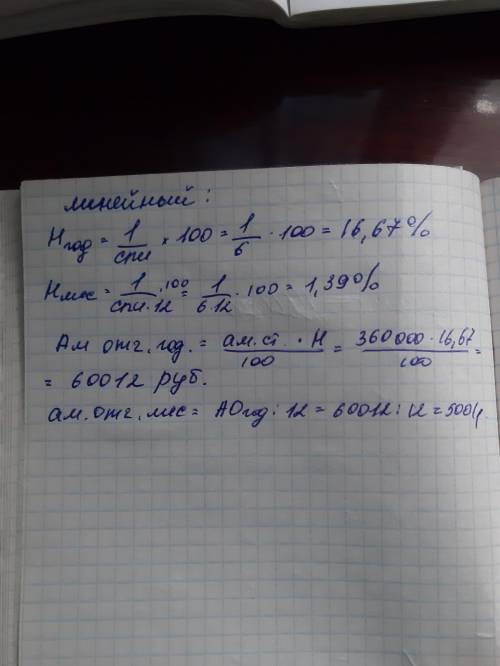 линейный:
Нгод = 1/спи × 100 = 1/6 · 100 = 16,67%
Нмес = 1/спи·12 · 100 = 1/6·12 · 100 = 1,39%
Ам отч. год. = ам.ст. · Н/100 = 360000 · 16,67/100 =
= 60012 руб.
ам. отч. мес = АОгод : 12 = 60012 : 12 = 5001